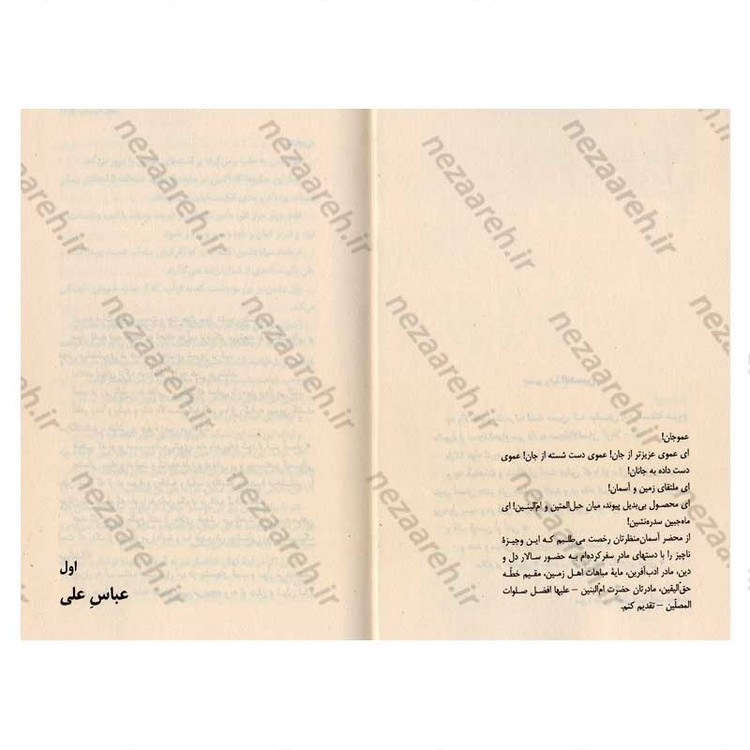 عموجان!
ای عموی عزیزتر از جان! عموی دست شسته از جان! عموی
دست داده به جانان!
ای ملتقای زمین و آسمان!
ای محصول بی‌بدیل پیوند، میان حبل‌المتین و ام‌البنین! ای
ماه‌جبین سدره‌نشین!
از محضر آسمان‌منظرتان رخصت می‌طلبم که این وجیزهٔ
ناچیز را با دستهای مادرِ سفرکرده‌ام به حضور سالار دل و
دین، مادر ادب‌آفرین، مایهٔ مباهات اهل زمین، مقیم خطّه
حق‌الیقین، مادرتان حضرت ام‌البنین – علیها افضل صلوات
المصلّین – تقدیم کنم.
اول
عباسِ علی
nezaareh.ir
nezaareh.ir
nezaareh.ir
nezaareh.ir
nezaareh.ir
nezaareh.ir
nezaareh.ir
nezaareh.ir
nezaareh.ir